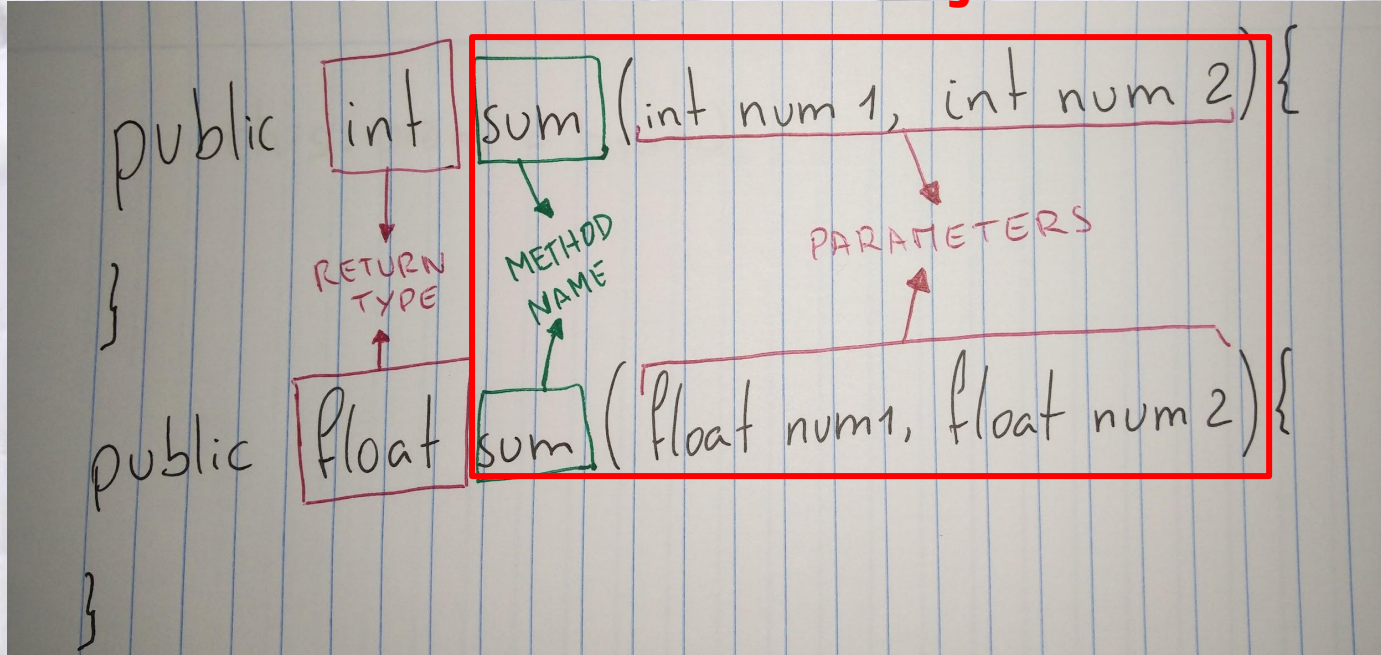 public int sum (int num 1, int num 2) {
RETURN TYPE
METHOD NAME
PARAMETERS
}
public float sum (float num1, float num 2) {
}